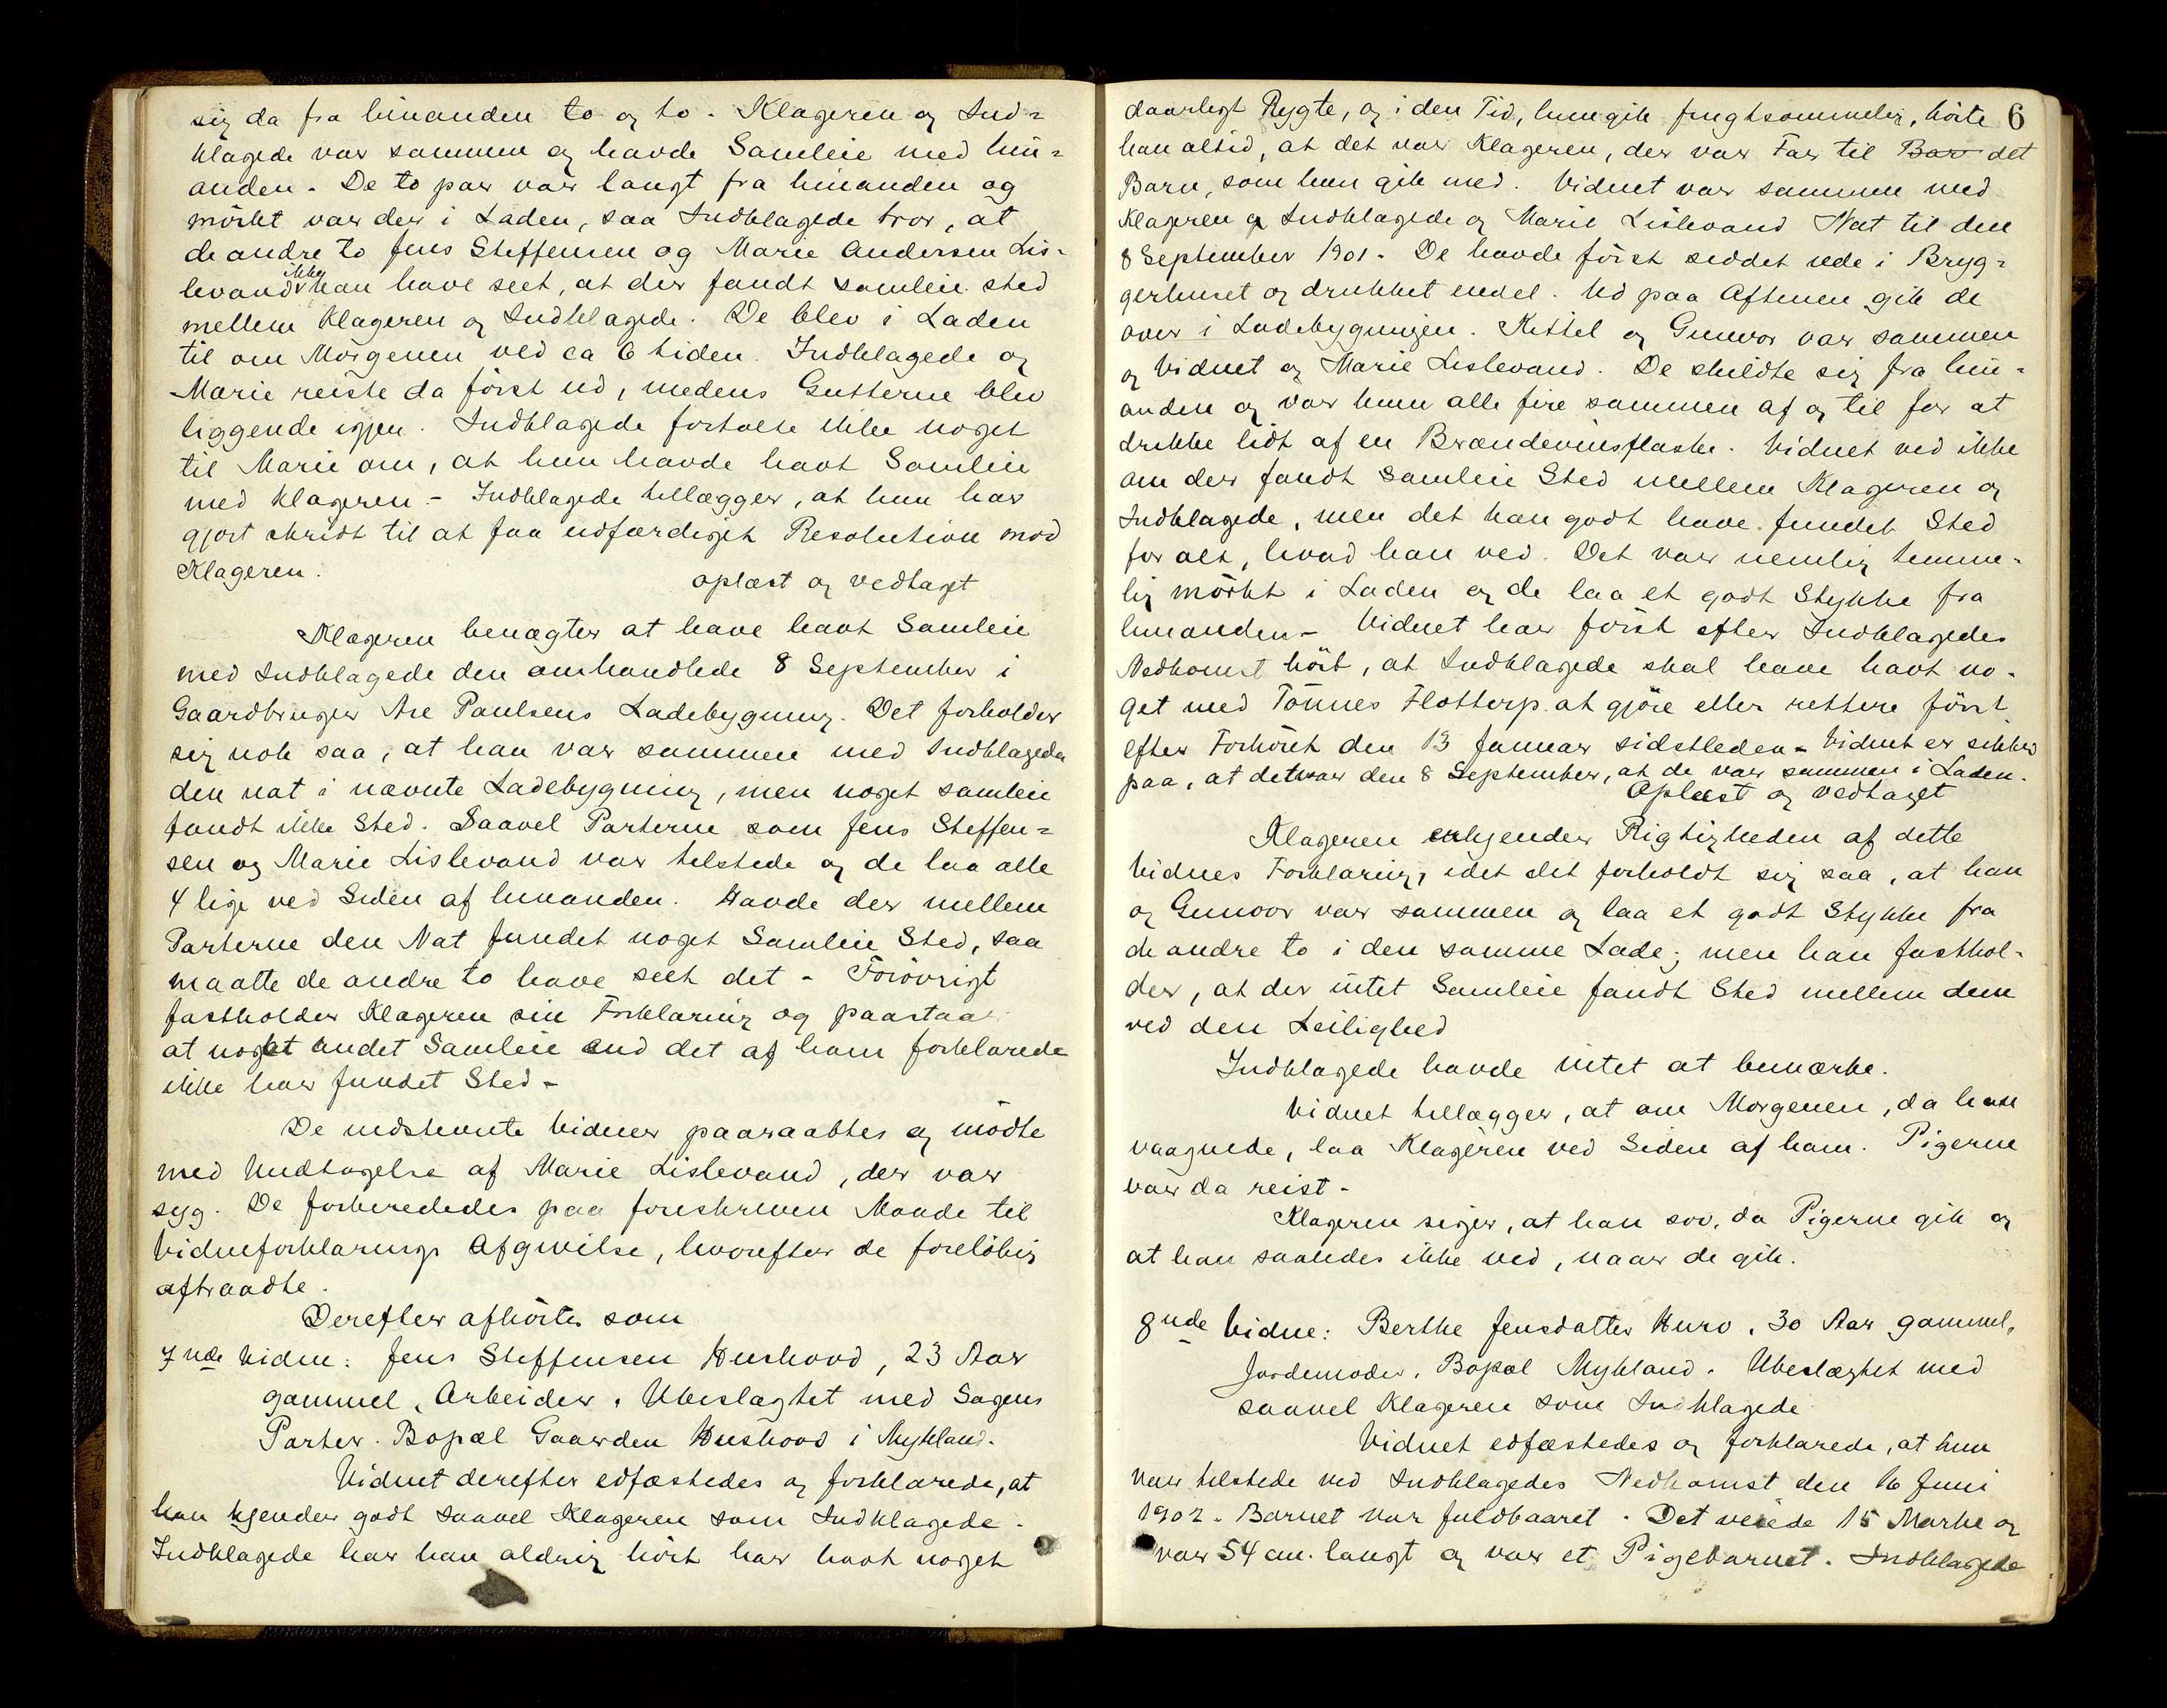 sig da fra hinanden to og to. Klageren og Ind=
klagede var sammen og havde Samleie med hin=
anden. De to par var langt fra hinanden og
mörkt var der i Laden, saa Indklagede tror, at
de andre to Jens Steffensen og Marie Andersen Lis-
levand ikke kan have seet, at der fandt samleie sted
mellem Klageren og Indklagede. De blev i Laden
til om Morgenen ved ca 6 tiden. Indklagede og
Marie reiste da först ud, medens Gutterne blev
liggende igjen. Indklagede fortalte ikke noget
til Marie om, at hun havde havt Samleie
med Klageren - Indklagede tillægger, at hun har
gjort skridt til at faa udfærdiget Resolution mod
Klageren.
oplæst og vedtaget
Klageren benægter at have havt Samleie
med Indklagede den omhandlede 8 September i
Gaardbruger Are Paulsens Ladebygning. Det forholder
sig nok saa, at han var sammen med Indklagede
den nat i nævnte Ladebygning, men noget samleie
fandt ikke Sted. Saavel Parterne som Jens Steffen=
sen og Marie Lislevand var tilstede og de laa alle
4 lige ved Siden af hinanden. Havde der mellem
Parterne den Nat fundet noget Samleie Sted, saa
maatte de andre to have seet det - Forövrigt
fastholder Klageren sin Forklaring og paastaar
at noget andet Samleie end det af ham forklarede
ikke har fundet Sted -
De indstevnte Vidner paaraabtes og mödte
med Undtagelse af Marie Lislevand, der var
syg. De forberededes paa foreskreven Maade til
Vidneforklarings Afgivelse, hvorefter de foreløbig
aftraadte.
Derefter afhörtes som
7nde Vidne: Jens Steffensen Hushovd, 23 Aar
gammel, Arbeider. Ubeslagtet med Sagens
Parter. Bopæl Gaarden Hushovd i Mykland.
Vidnet derefter edfæstedes og forklarede, at
han kjender godt saavel Klageren som Indklagede.
Indklagede har han aldrig hört har havt noget
6
daarligt Rygte, og i den Tid, hun gik frugtsommelig, hörte
han altid, at det var Klageren, der var Far til Bar det
Barn, som hun gik med. Vidnet var sammen med
Klageren og Indklagede og Marie Lislevand Nat til den
8 September 1901. De havde först siddet nede i Bryg=
gerhuset og drukket endel. Ud paa Aftenen gik de
over i Ladebygningen. Kittel og Gunvor var sammen
og Vidnet og Marie Lislevand. De skildte sig fra hin=
anden og var kun alle fire sammen af og til for at
drikke lidt af en Brændevinsflaske. Vidnet ved ikke
om der fandt Samleie Sted mellem Klageren og
Indklagede, men det kan godt have fundet Sted
for alt, hvad han ved. Det var nemlig temme-
lig mörkt i Laden og de laa et godt Stykke fra
hinanden - Vidnet har först efter Indklagedes
Nedkomst hört, at Indklagede skal have havt no-
get med Tönnes Flotterp at gjöre eller rettere först
efter Forhöret den 13 Januar sidstleden - Vidnet er sikker
paa, at det var den 8 September, at de var sammen i Laden.
Oplæst og vedtaget
Klageren erkjender Rigtigheden af dette
Vidnes Forklaring, idet det forholdt sig saa, at han
og Gunvor var sammen og laa et godt Stykke fra
de andre to i den samme Lade; men han fasthol-
der, at der intet Samleie fandt Sted mellem dem
ved den Leilighed
Indklagede havde intet at bemærke.
Vidnet tillægger, at om Morgenen, da han
vaagnede, laa Klageren ved Siden af ham. Pigerne
var da reist -
Klageren siger, at han sov, da Pigerne gik og
at han saaledes ikke ved, naar de gik.
8nde Vidne: Berthe Jensdatter Uurv, 30 Aar gammel,
Jordemoder. Bopæl Mykland. Ubeslægtet med
saavel Klageren som Indklagede
Vidnet edfæstedes og forklarede, at hun
var tilstede ved Indklagedes Nedkomst den 16 Juni
1902. Barnet var fuldbaaret. Det veiede 15 Marke og
var 54 cm. langt og var et Pigebarnet. Indklagede